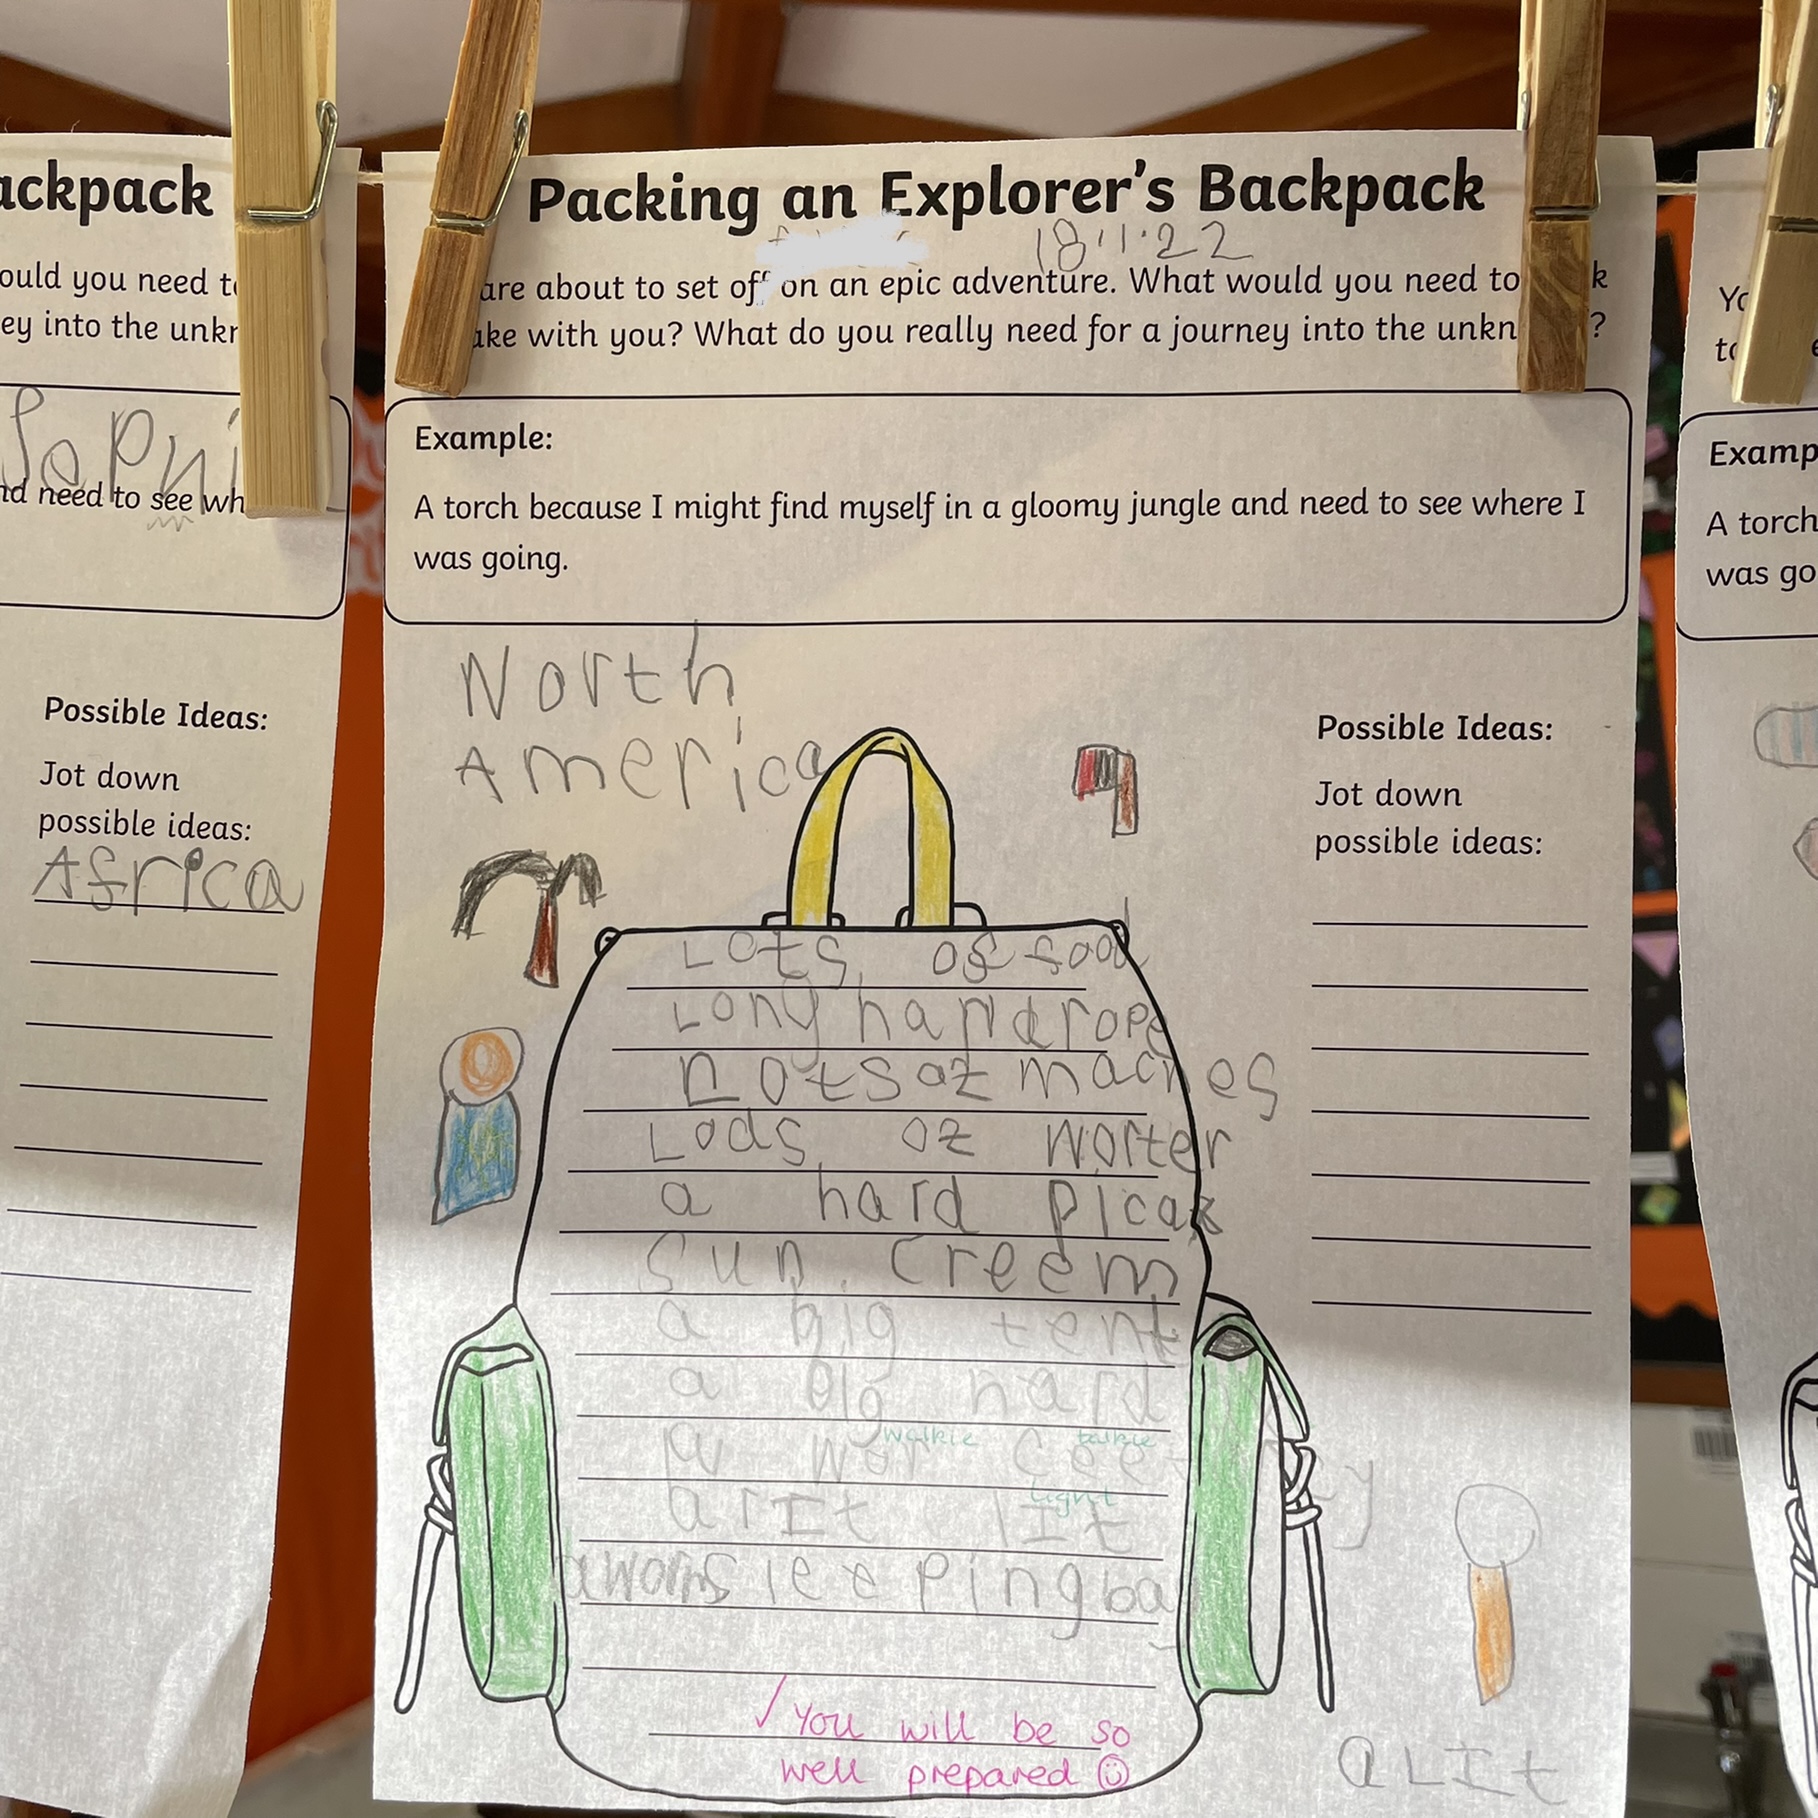 ackpack
ould you need to
ey into the unkr
Sophi
nd need to see wh
Possible Ideas:
Jot down
possible ideas:
Africa
Packing an Explorer's Backpack
18.1.22
are about to set off on an epic adventure. What would you need to k
ake with you? What do you really need for a journey into the unkn ?
Example:
A torch because I might find myself in a gloomy jungle and need to see where I
was going.
North
America
Possible Ideas:
Jot down
possible ideas:
Lots of food
Long hand rope
Lots oz maches
Lods oz worter
a hard picax
Sun creem
a big tent
a big hard
walkie talkie
a wor cee
light
a rIt lIt
a worm sleepingbag
You will be so
well prepared
a LIt
Yo
to
Examp
A torch
was go